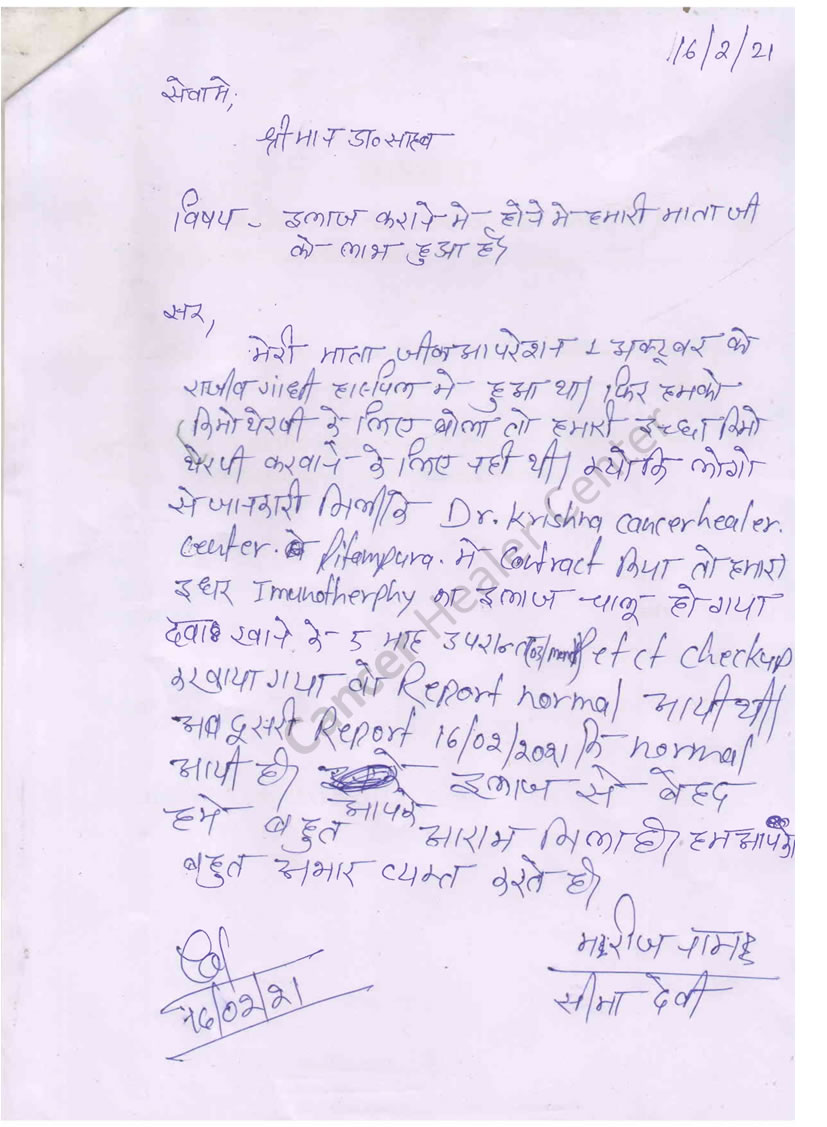 16/2/21
सेवामे,
श्रीमान डा०साहब
विषय - इलाज कराने मे होने मे हमारी माता जी
को लाभ हुआ है।
सर,
मेरी माता जीका आपरेशन 1 अक्टूबर को
राजीव गांधी हास्पिल मे हुआ था। फिर हमको
किमोथेरपी के लिए बोला तो हमारी इच्छा किमो
थेरपी करवाने के लिए नही थी। क्योकि लोगो
से जानकारी मिलीकि Dr. Krishna cancerhealer.
center. Pitampura. मे Contract किया तो हमारा
इधर Imunotherphy का इलाज चालू हो गया
दवा खाने के 5 माह उपरान्त Pet ct checkup
करवाया गया वो Report normal आयी थी।
अब दूसरी Report 16/02/2021 कि normal
आयी है। इलाज से बेहद
हमे बहुत आपके आराम मिला है। हम आपका
बहुत अभार व्यक्त करते है।
मरीज नाम
सीमा देवी
16/02/21
Cancer Healer Center